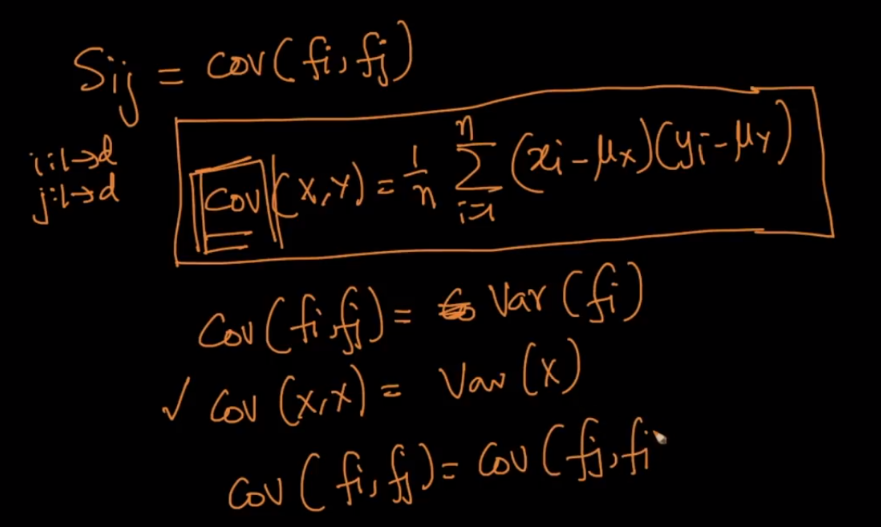 Sij = cov(fi, fj)
i: 1→d
j: 1→d
Cov(X,Y) = 1/n Σ_{i=1}^{n} (xi - μx)(yi - μY)
Cov(fi, fj) = Var(fi)
✓ Cov(x,x) = Var(x)
Cov(fi, fj) = Cov(fj, fi